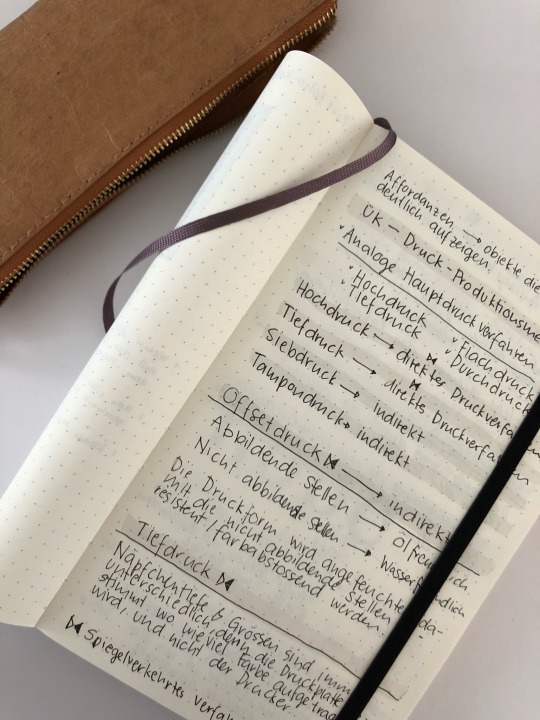 Affordanzen → objekte die
deutlich aufzeigen.
ÜK – Druck-Produktions
Analoge Hauptdruckverfahren
Hochdruck Flachdruck
Tiefdruck Durchdruck
Hochdruck → direktes Druckverfahren
Tiefdruck → direktes Druckverfahren
Siebdruck → indirekt
Tampondruck → indirekt
Offsetdruck → indirekt
Abbildende Stellen →
Nicht abbildende Stellen →
Die Druckform wird angefeuchtet, da-
mit die nicht abbildende Stellen
resistent/farbabstossend werden.
Tiefdruck
Näpfchentiefe & Grössen sind imm
unterschiedlich, denn die Druckplatte
stimmt wo wieviel Farbe aufgetrag
wird, und nicht der Drucker
Spiegelverkehrtes Verfah